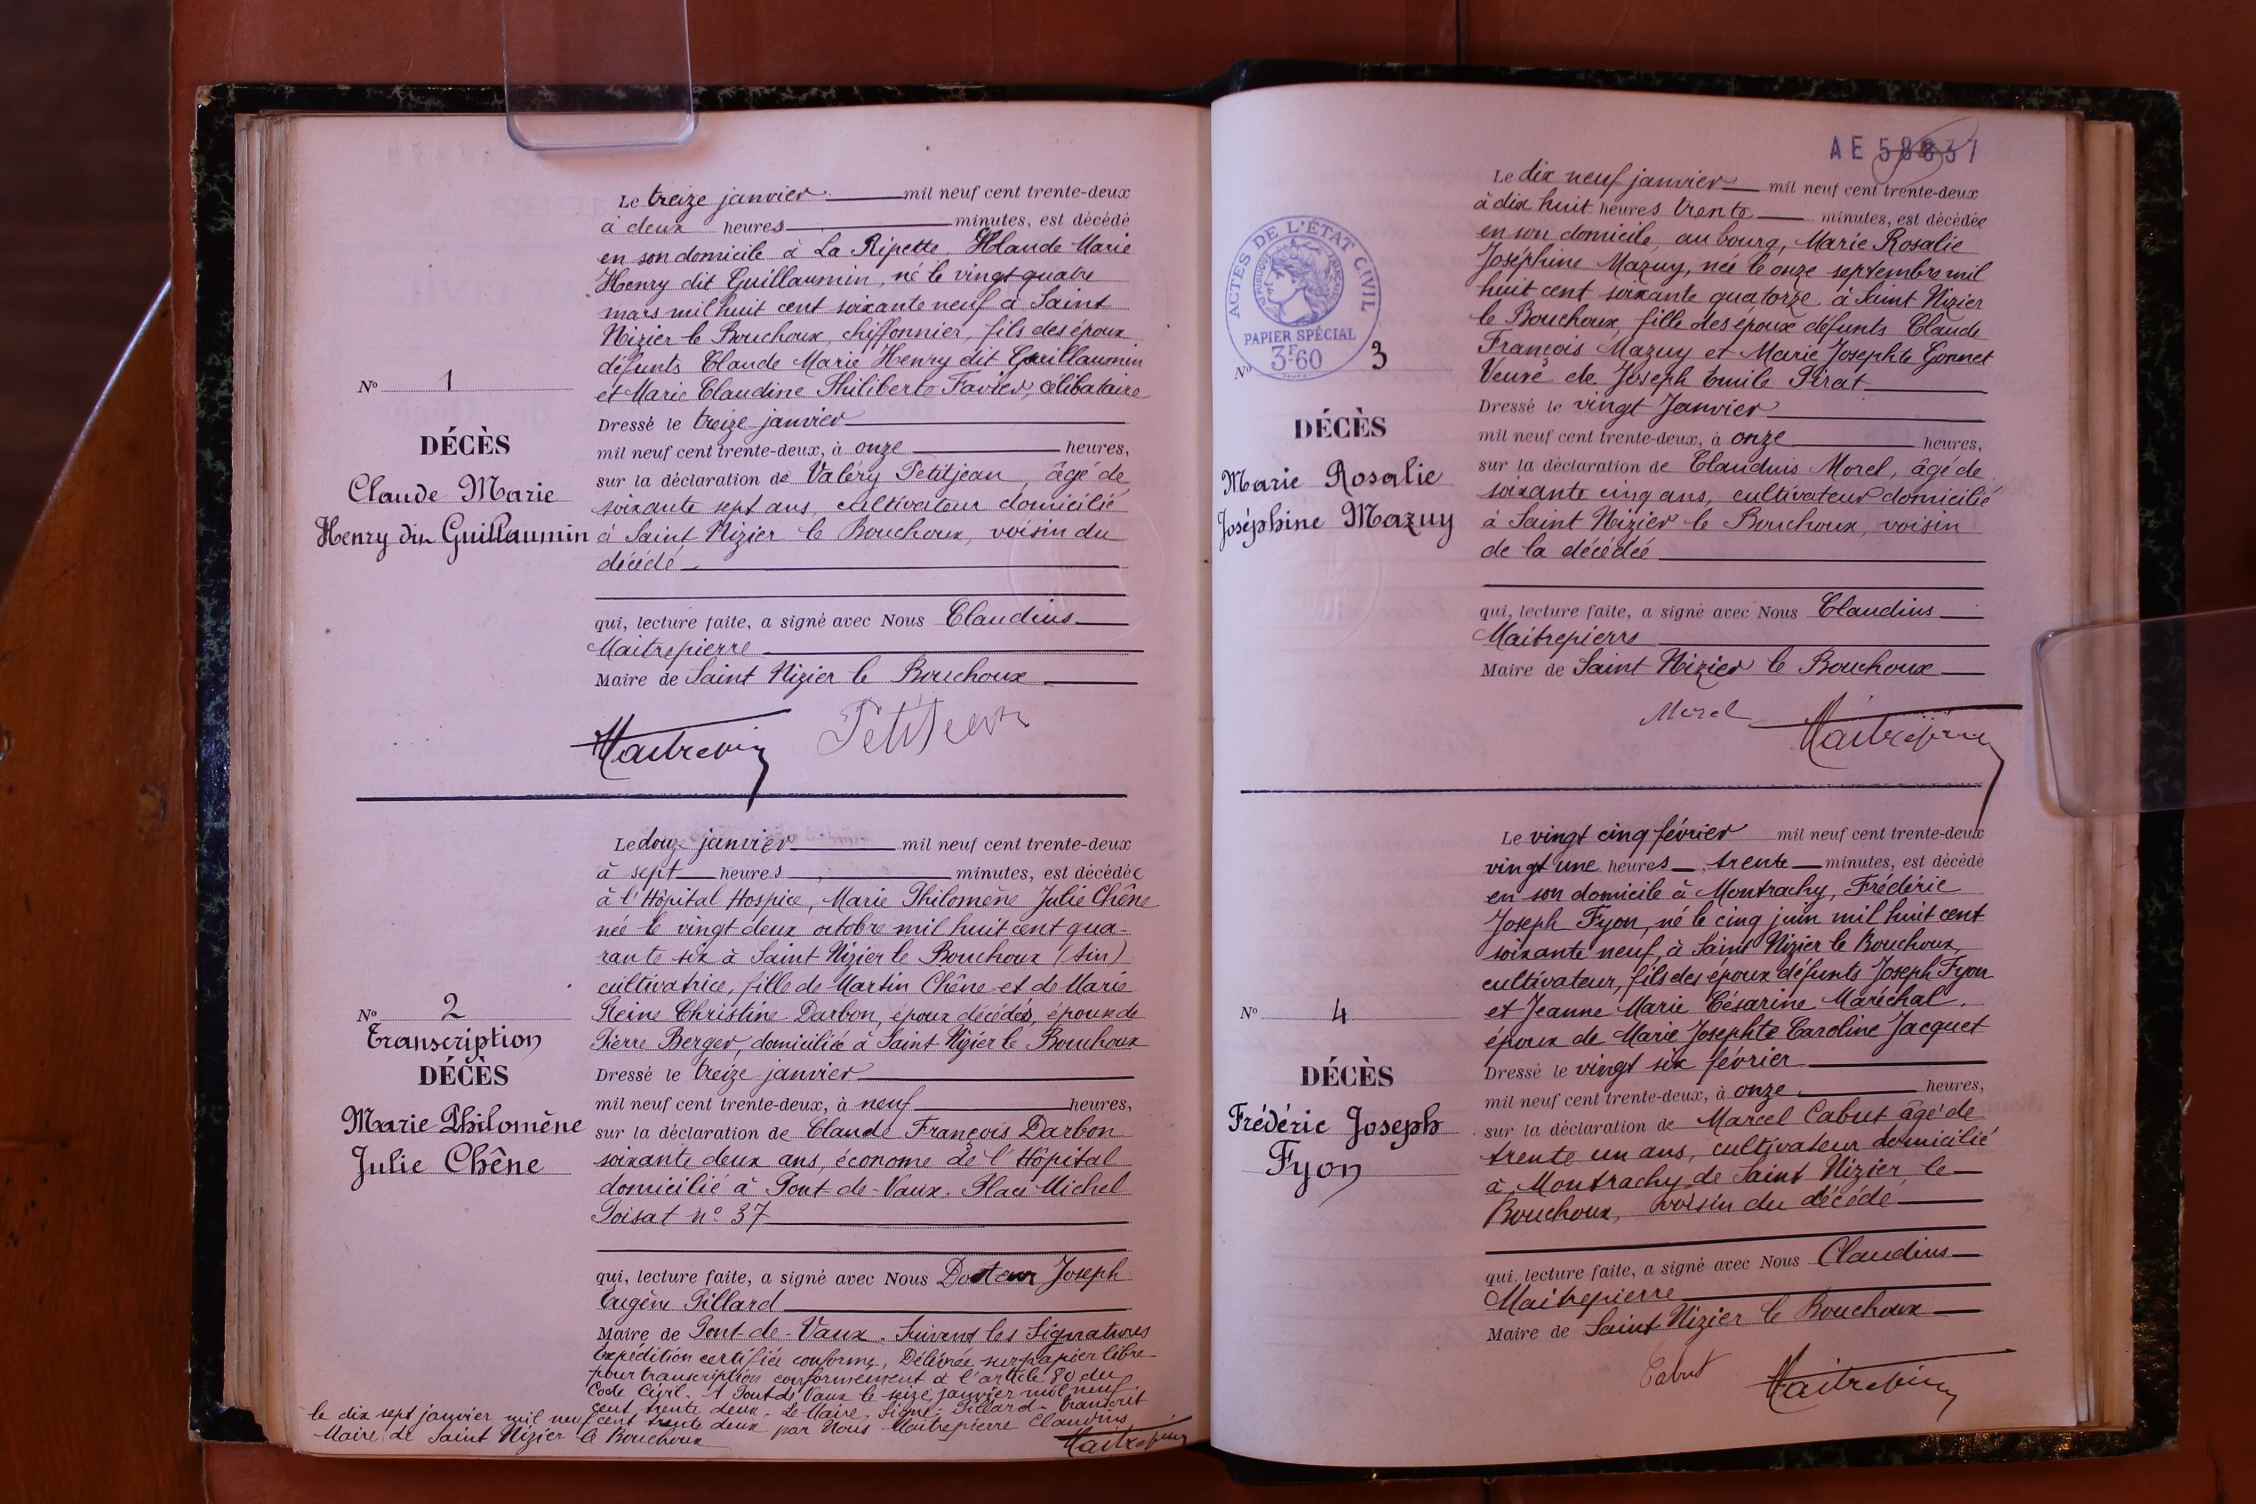 Le treize janvier mil neuf cent trente-deux
à deux heures minutes, est décédé
en son domicile à La Ripette. Claude Marie
Henry dit Guillaumin, né le vingt quatre
mars mil huit cent soixante neuf à Saint
Nizier le Bouchoux, chiffonnier, fils des époux
défunts Claude Marie Henry dit Guillaumin
et Marie Claudine Philiberte Favier, célibataire
Nº 1
DÉCÈS
Claude Marie
Henry dit Guillaumin
Dressé le treize janvier
mil neuf cent trente-deux, à onze heures,
sur la déclaration de Valéry Petitjean, âgé de
soixante sept ans, cultivateur domicilié
à Saint Nizier le Bouchoux, voisin du
décédé
qui, lecture faite, a signé avec Nous Claudius
Maitrepierre
Maire de Saint Nizier le Bouchoux
Maitrepierre Petitjean
Le douze janvier mil neuf cent trente-deux
à sept heures minutes, est décédée
à l'Hôpital Hospice, Marie Philomène Julie Chêne
née le vingt deux octobre mil huit cent qua-
rante six à Saint Nizier le Bouchoux (Ain)
cultivatrice, fille de Martin Chêne et de Marie
Reine Christine Darbon, époux décédés, épouse de
Pierre Berger, domiciliée à Saint Nizier le Bouchoux
Nº 2
Transcription
DÉCÈS
Marie Philomène
Julie Chêne
Dressé le treize janvier
mil neuf cent trente-deux, à neuf heures,
sur la déclaration de Claude François Darbon
soixante deux ans, économe de l'Hôpital
domicilié à Pont-de-Vaux. Place Michel
Poisat nº 37
qui, lecture faite, a signé avec Nous Docteur Joseph
Eugène Pillard
Maire de Pont-de-Vaux. Suivent les Signatures
Expédition certifiée conforme, Délivrée sur papier libre
pour transcription conformément à l'article 80 du
Code Civil. A Pont de Vaux le seize janvier mil neuf
cent trente deux. Le Maire. Signé: Pillard. Transcrit
le dix sept janvier mil neuf cent trente deux par Nous Maitrepierre Claudius
Maire de Saint Nizier le Bouchoux
Maitrepierre
AE 58831
Le dix neuf janvier mil neuf cent trente-deux
à dix huit heures trente minutes, est décédée
en son domicile, au bourg, Marie Rosalie
Joséphine Mazuy, née le onze septembre mil
huit cent soixante quatorze à Saint Nizier
le Bouchoux, fille des époux défunts Claude
François Mazuy et Marie Josephte Gonnet
Veuve de Joseph Emile Pirat
ACTES DE L'ÉTAT CIVIL
RÉPUBLIQUE FRANÇAISE
PAPIER SPÉCIAL
3F60
Nº 3
DÉCÈS
Marie Rosalie
Joséphine Mazuy
Dressé le vingt Janvier
mil neuf cent trente-deux, à onze heures,
sur la déclaration de Claudius Morel, âgé de
soixante cinq ans, cultivateur domicilié
à Saint Nizier le Bouchoux, voisin
de la décédée
qui, lecture faite, a signé avec Nous Claudius
Maitrepierre
Maire de Saint Nizier le Bouchoux
Morel Maitrepierre
Le vingt cinq février mil neuf cent trente-deux
vingt une heures trente minutes, est décédé
en son domicile à Montrachy, Frédéric
Joseph Fyon, né le cinq juin mil huit cent
soixante neuf, à Saint Nizier le Bouchoux,
cultivateur, fils des époux défunts Joseph Fyon
et Jeanne Marie Césarine Maréchal.
époux de Marie Josephte Caroline Jacquet
Nº 4
DÉCÈS
Frédéric Joseph
Fyon
Dressé le vingt six février
mil neuf cent trente-deux, à onze heures,
sur la déclaration de Marcel Cabut âgé de
trente un ans, cultivateur domicilié
à Montrachy de Saint Nizier le
Bouchoux, voisin du décédé
qui, lecture faite, a signé avec Nous Claudius
Maitrepierre
Maire de Saint Nizier le Bouchoux
Cabut Maitrepierre